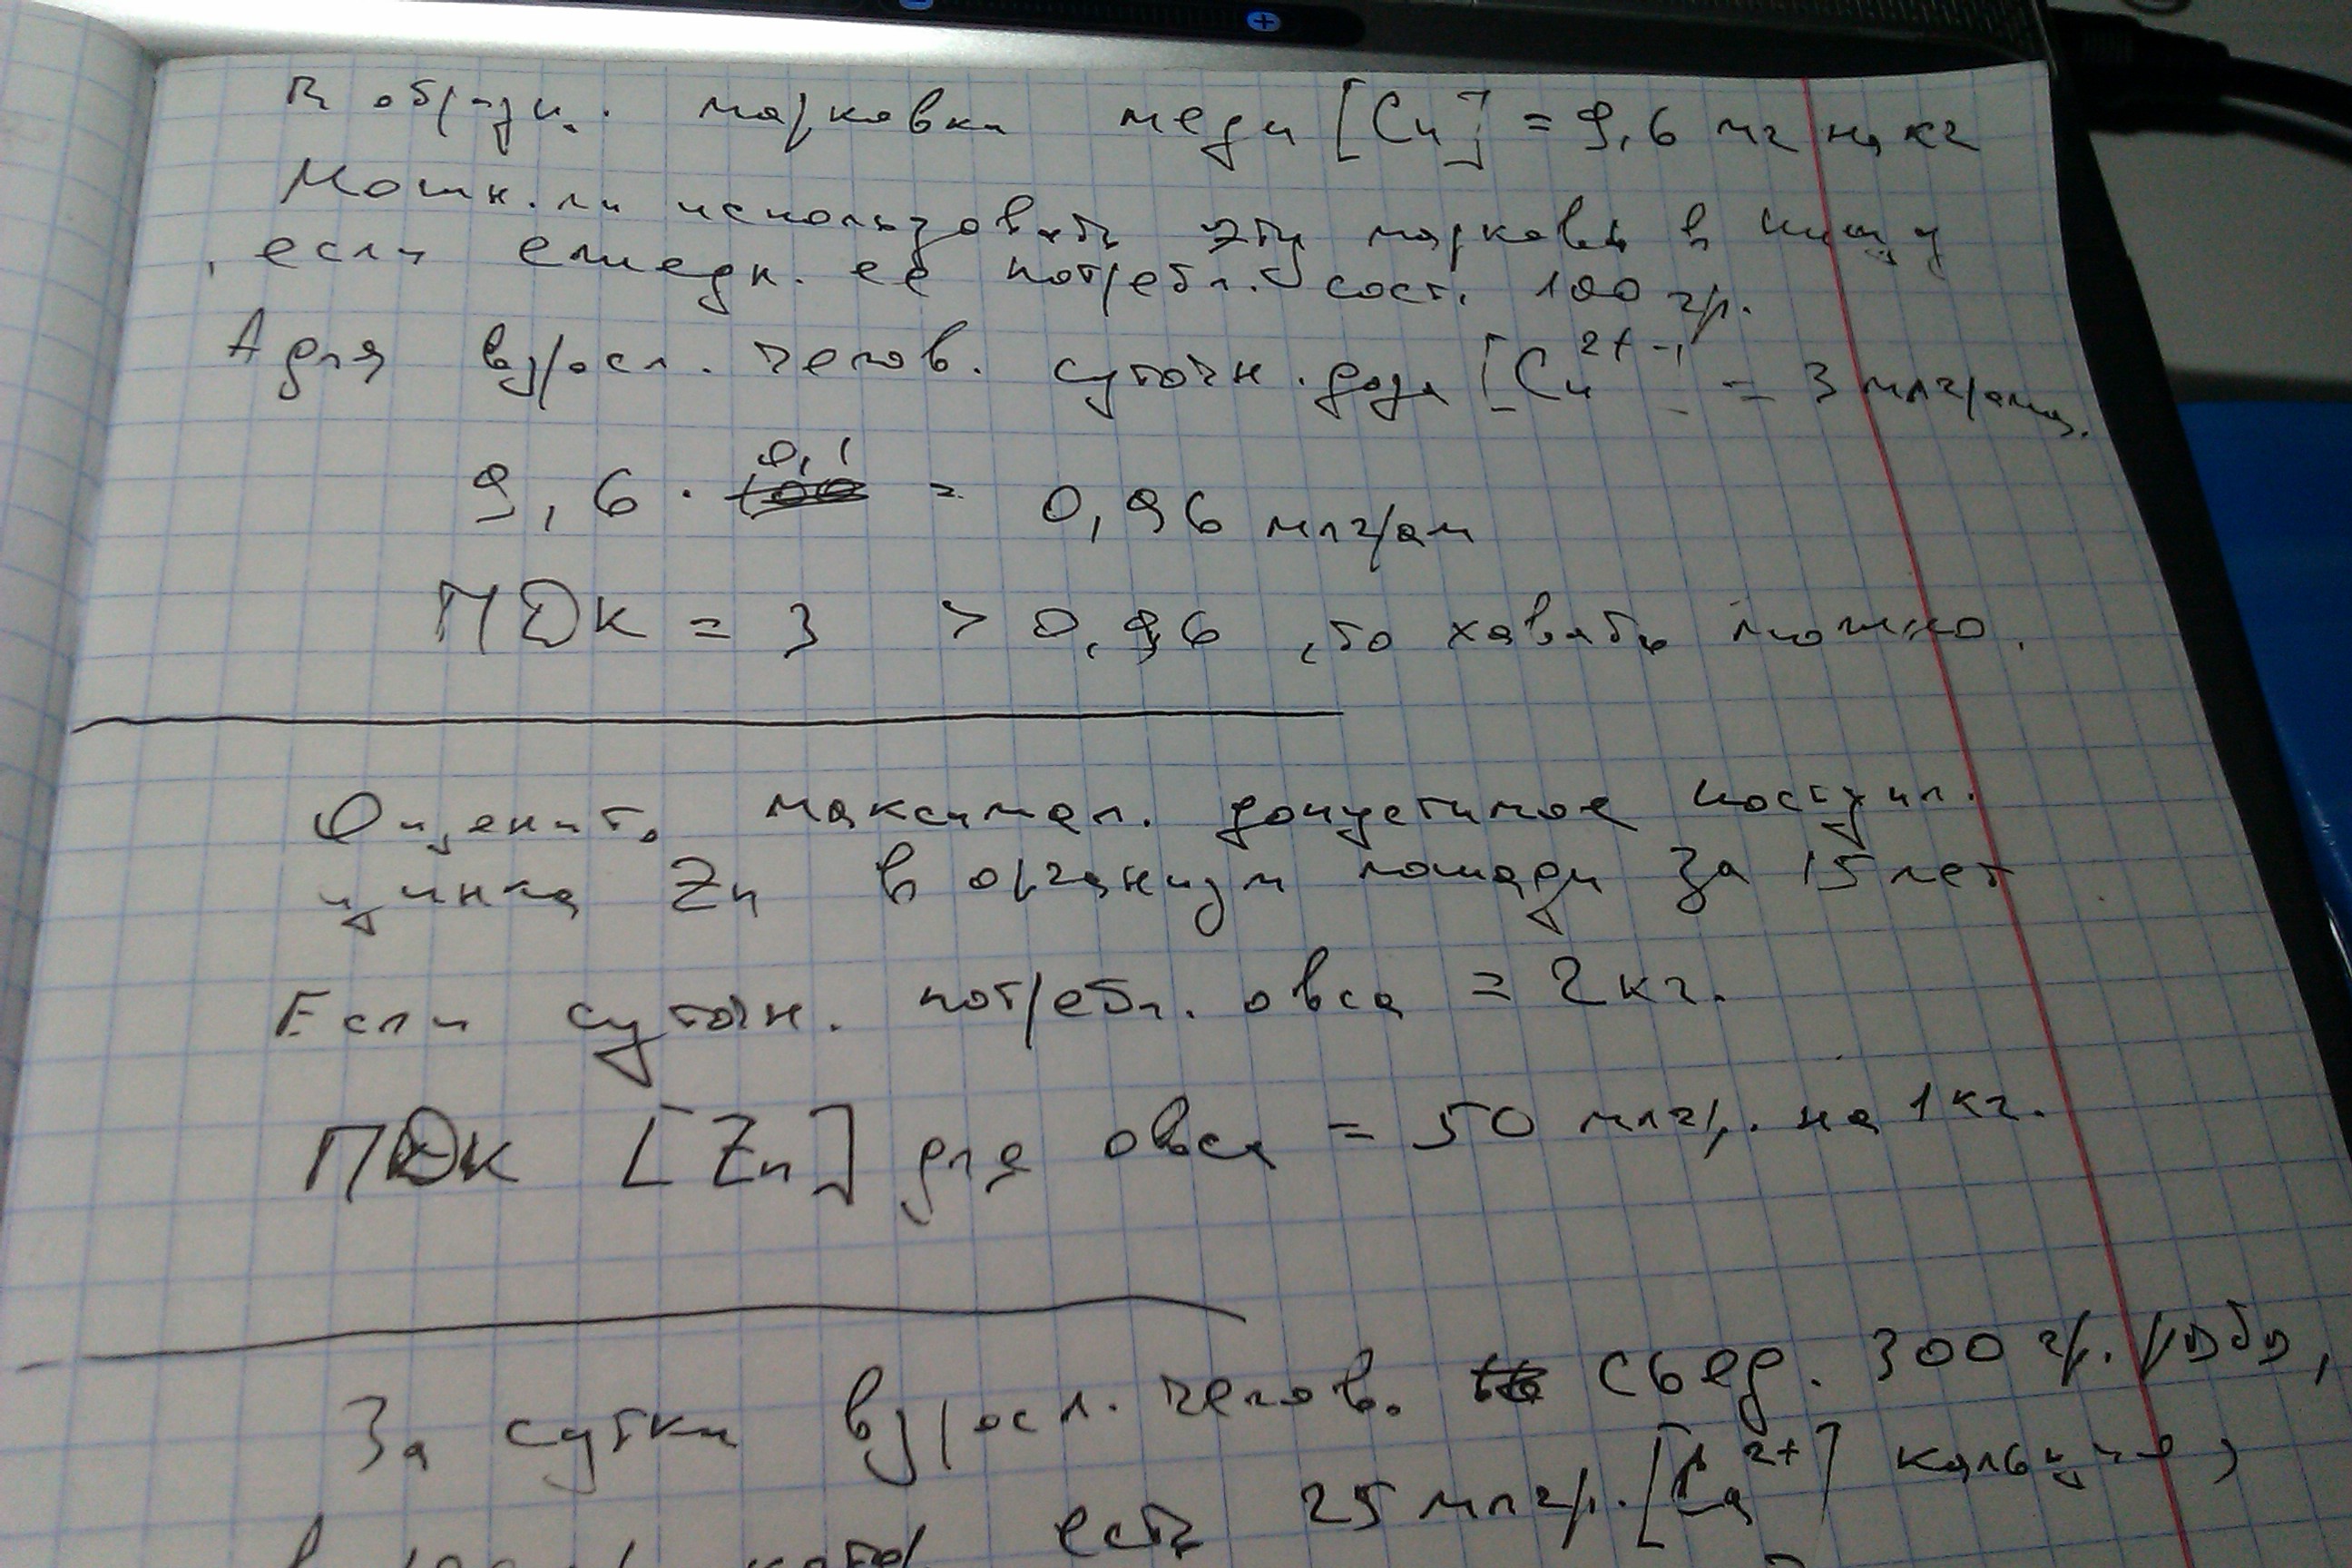 В образц. морковки меди [Cu] = 9,6 мг на кг
Можн. ли использовать эту морковь в пищу
, если ежедн. её потребл. сост. 100 гр.
А для взросл. челов. суточн. доза [Cu²⁺] = 3 млграма.
9,6 · 0,1 = 0,96 млграм
ПДК = 3 > 0,96 , то хавать можно.
Оценить максимал. допустимое поступл.
цинка Zn в организм лошади за 15 лет
Если суточн. потребл. овса = 2 кг.
ПДК [Zn] для овса = 50 млгр. на 1 кг.
За сутки взросл. челов. съед. 300 гр.
есть 25 млгр. [Ca²⁺] кальция,